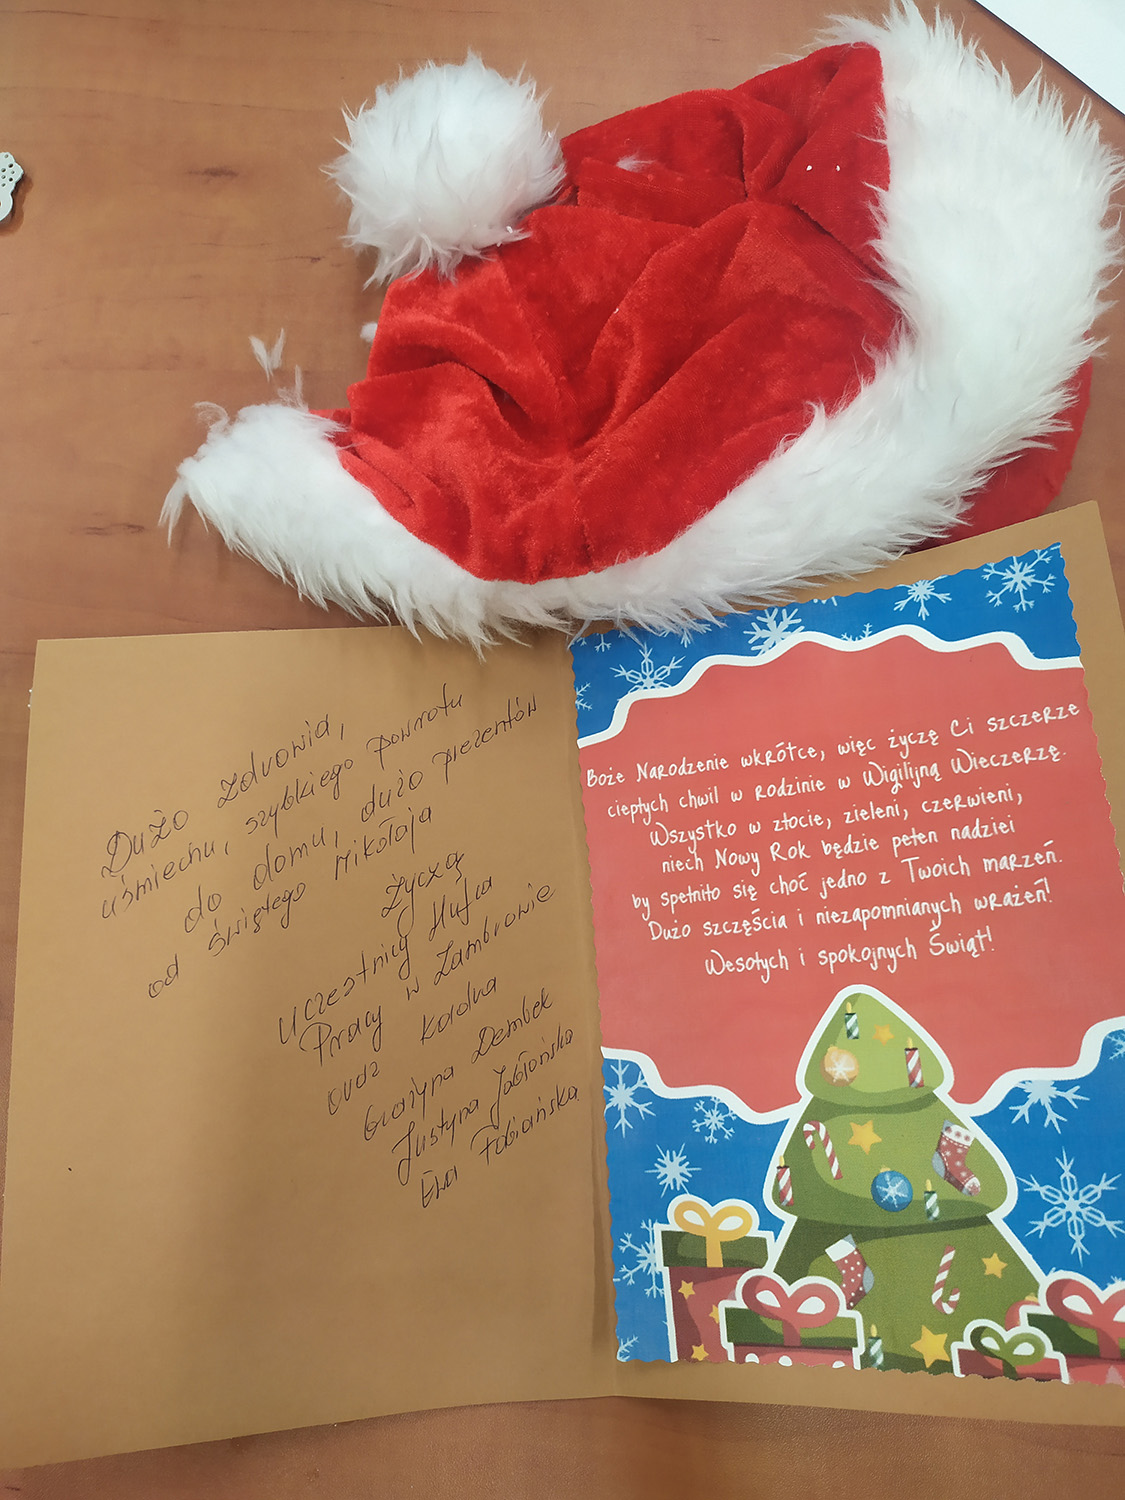 Dużo zdrowia,
uśmiechu, szybkiego powrotu
do domu, dużo prezentów
od świętego Mikołaja
życzą
uczestnicy Hufca
Pracy w Zambrowie
oraz kadra
Grażyna Dembek
Justyna Jabłońska
Ewa Fabiańska
Boże Narodzenie wkrótce, więc życzę Ci szczerze
ciepłych chwil w rodzinie w Wigilijną Wieczerzę.
Wszystko w złocie, zieleni, czerwieni,
niech Nowy Rok będzie pełen nadziei
by spełniło się choć jedno z Twoich marzeń.
Dużo szczęścia i niezapomnianych wrażeń!
Wesołych i spokojnych Świąt!